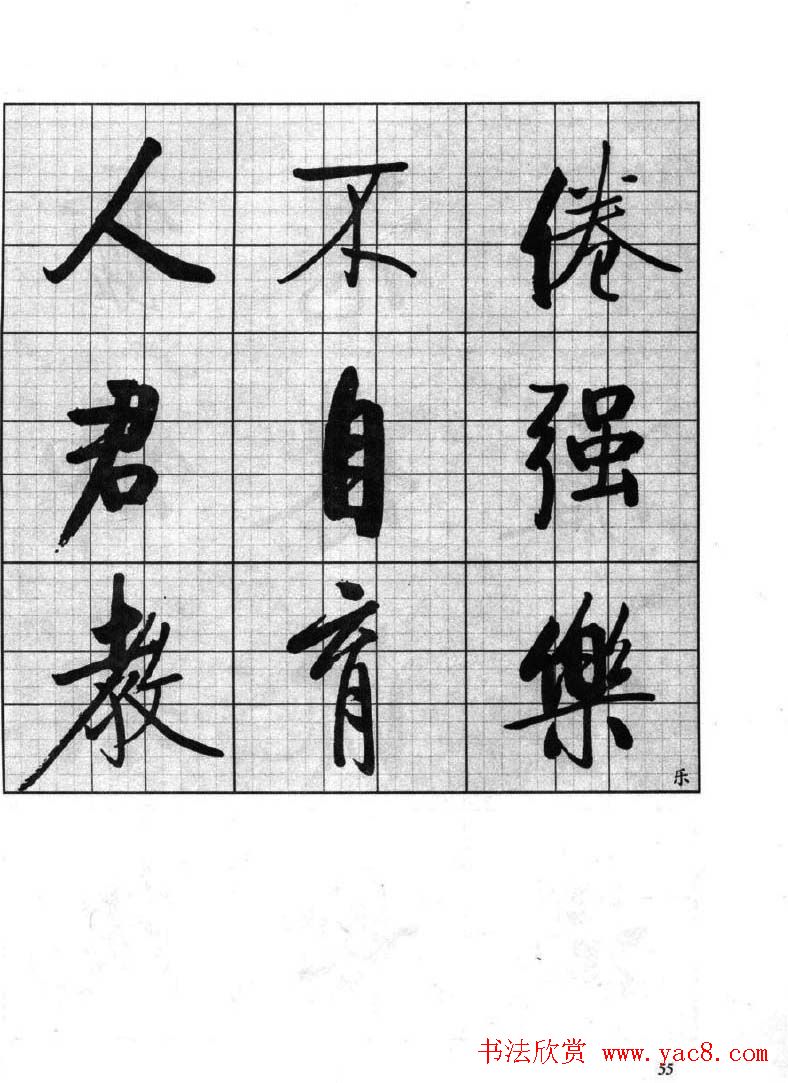 人不倦
君自强
教育樂
乐
书法欣赏 www.yac8.com
55